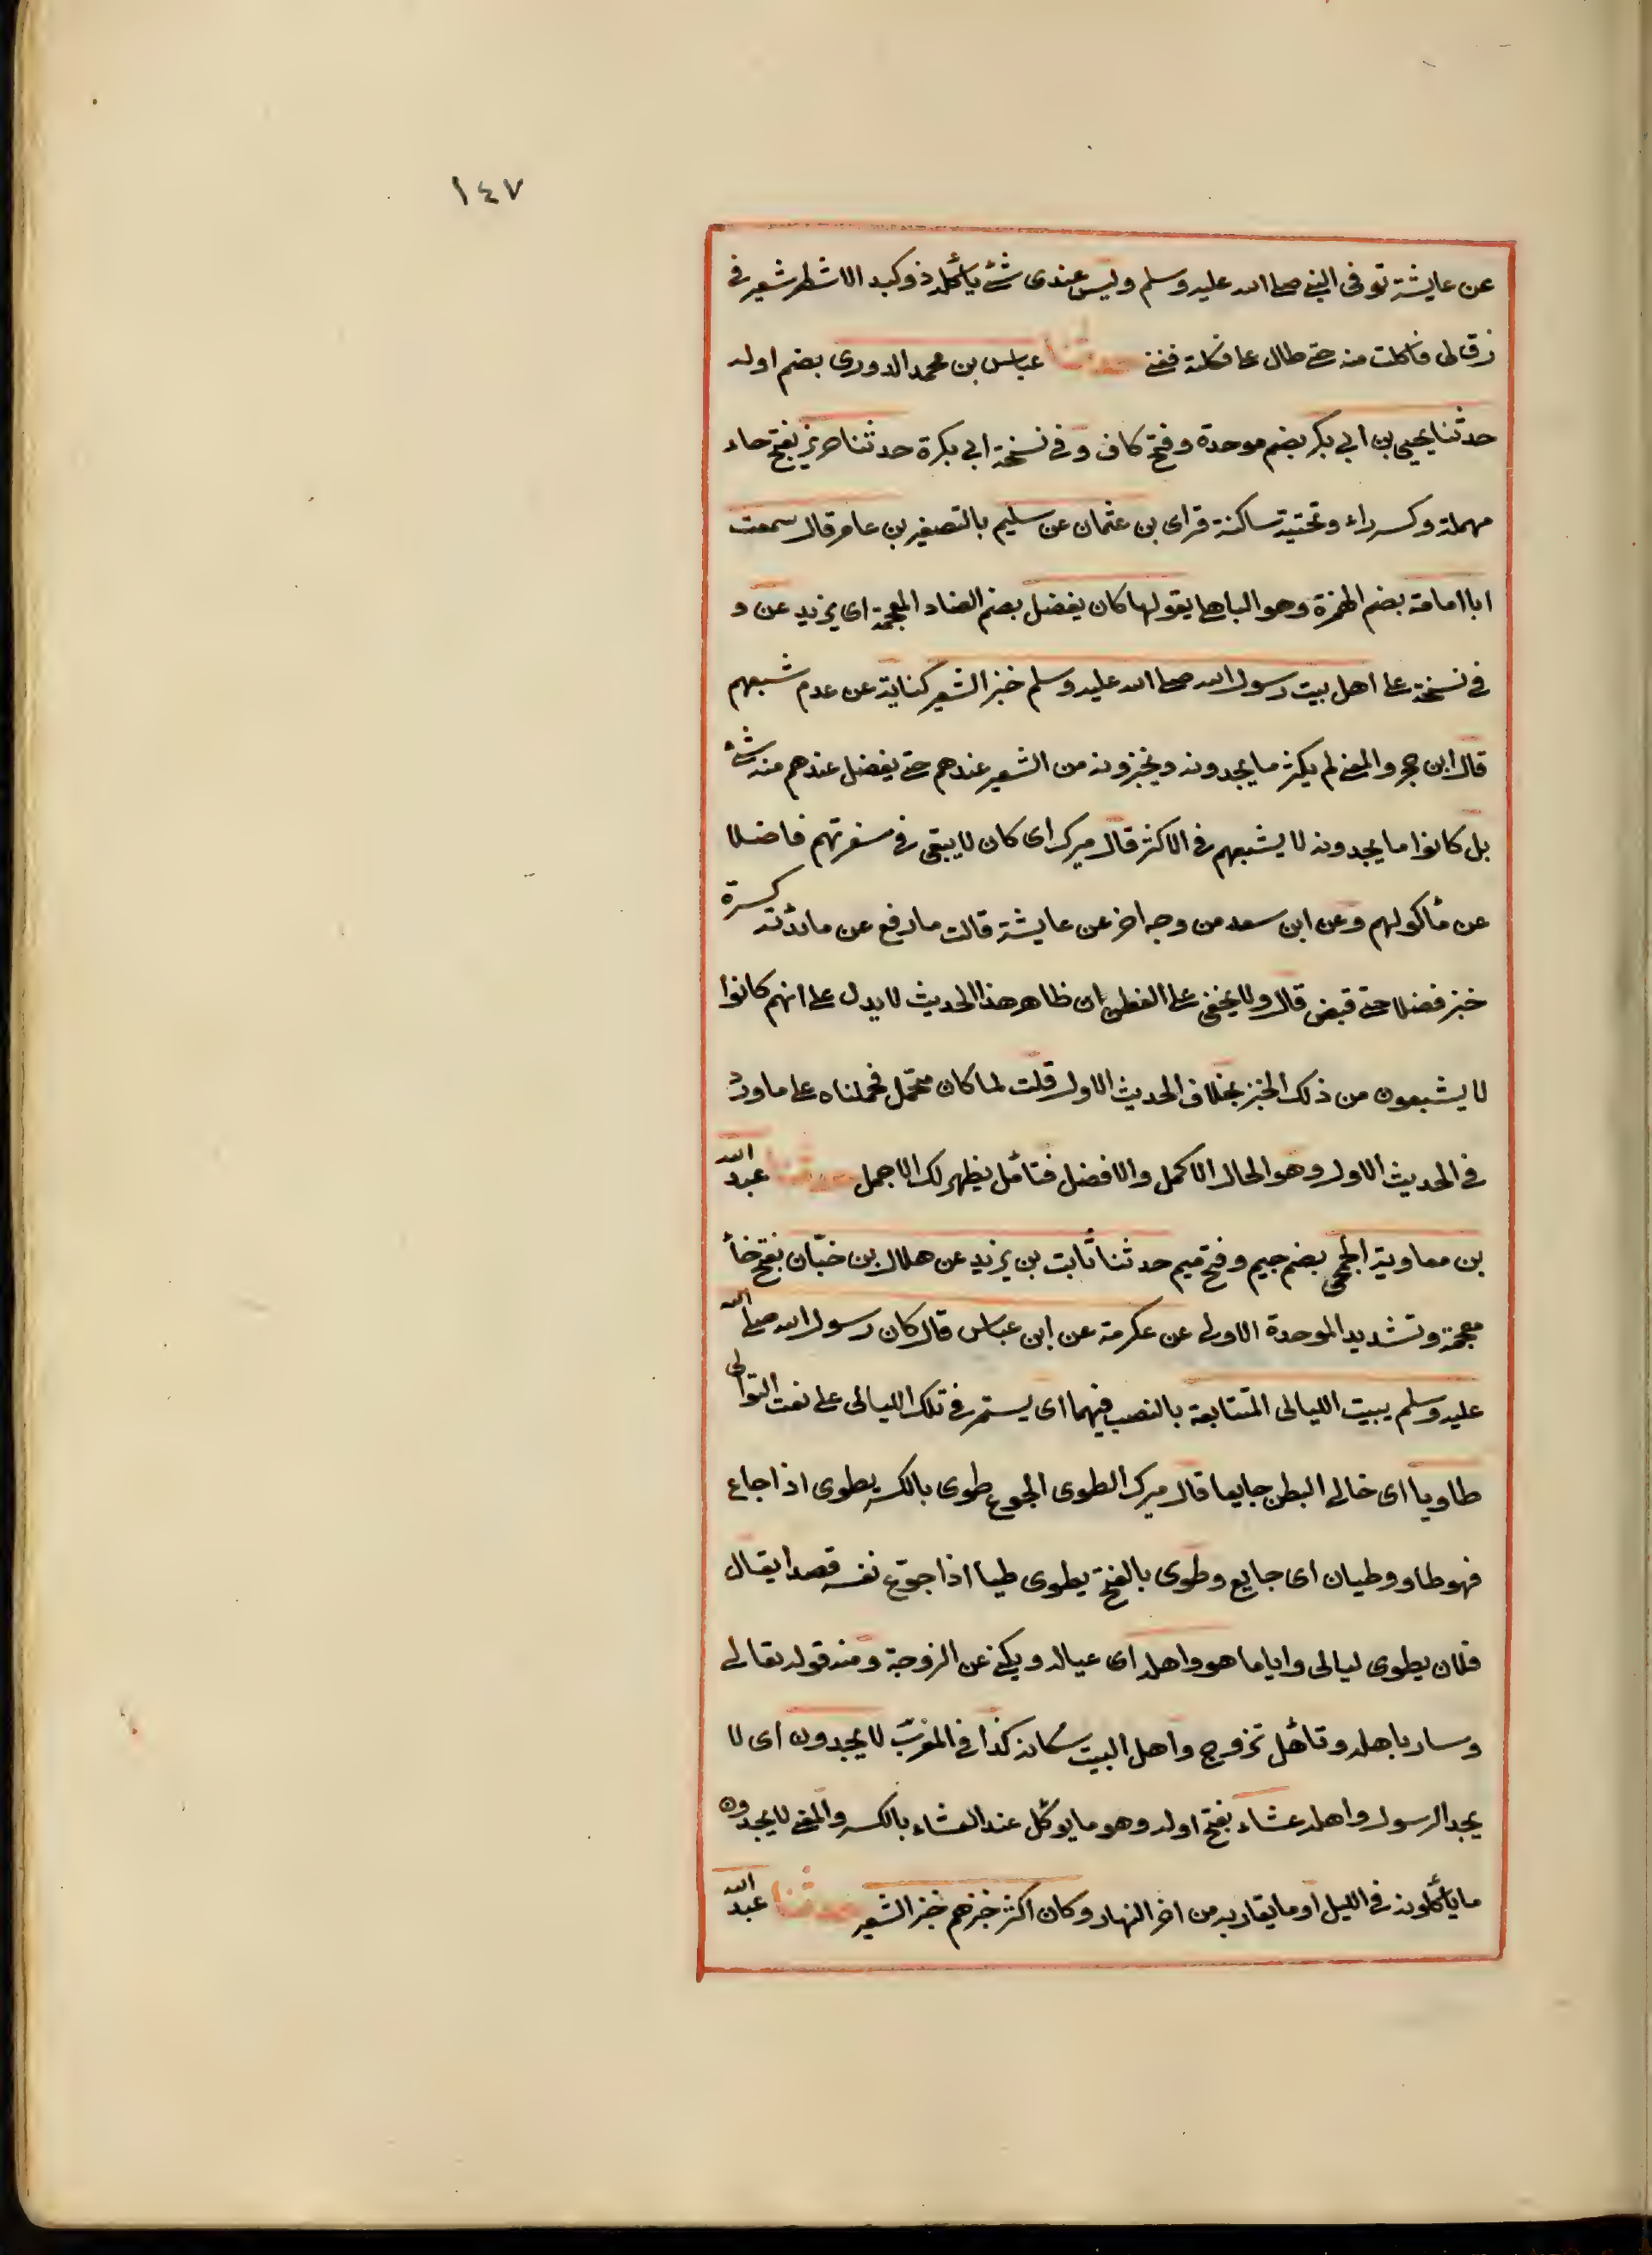 ١٤٧
عن عايشة توفى النبي صلى الله عليه وسلم وليس عندى شئ ياكله ذوكبد الا شطر شعير في
رق لى فاكلت منه حتى طال على فكلته ففنى حدثنا عباس بن محمد الدورى بضم اوله
حدثنا يحيى بن ابى بكر بضم موحدة وفتح كاف وفى نسخة ابى بكرة حدثنا حريز بفتح حاء
مهملة وكسر راء وتحتية ساكنة فزاى بن عثمان عن سليم بالتصغير بن عامر قال سمعت
ابا امامة بضم الهمزة وهو الباهلى يقول ما كان يفضل بضم الضاد المعجمة اى يزيد عن و
في نسخة على اهل بيت رسول الله صلى الله عليه وسلم خبز الشعير كناية عن عدم شبعهم
قال ابن حجر والمعنى لم يكثر ما يجدونه ويخبزونه من الشعير عندهم حتى يفضل عندهم منه شئ
بل كانوا ما يجدونه لا يشبعهم في الاكثر قال ميرك اى كان لا يبقى في سفرتهم فاضلا
عن مأكولهم وعن ابن سعد من وجه اخر عن عايشة قالت ما رفع عن مائدته كسرة
خبز فضلا حتى قبض قال ولا يخفى على الفطن ان ظاهر هذا الحديث لا يدل على انهم كانوا
لا يشبعون من ذلك الخبز بخلاف الحديث الاول قلت لما كان محتمل فحملناه على ما ورد
في الحديث الاول وهو الحال الاكمل والافضل فتأمل يظهر لك الاجمل حدثنا عبد الله
بن معاوية الجمحى بضم جيم وفتح ميم حدثنا ثابت بن يزيد عن هلال بن خبّان بفتح خاء
معجمة وتشديد الموحدة الاولى عن عكرمة عن ابن عباس قال كان رسول الله صلى الله
عليه وسلم يبيت الليالى المتتابعة بالنصب فيهما اى يستمر في تلك الليالى على نعت التوالى
طاويا اى خالى البطن جايعا قال ميرك الطوى الجوع طوى بالكسر يطوى اذا جاع
فهو طاو وطيان اى جايع وطوى بالفتح يطوى طيا اذا جوّع نفسه قصدا يقال
فلان يطوى ليالى واياما هو واهله اى عياله ويكنى عن الزوجة ومنه قوله تعالى
وسار باهله وتأهل تزوج واهل البيت سكانه كذا في المغرب لا يجدون اى لا
يجد الرسول واهله عشاء بفتح اوله وهو ما يوكل عند العشاء بالكسر والمعنى لا يجدون
ما يأكلونه في الليل او ما يقاربه من اخر النهار وكان اكثر خبزهم خبز الشعير حدثنا عبد الله